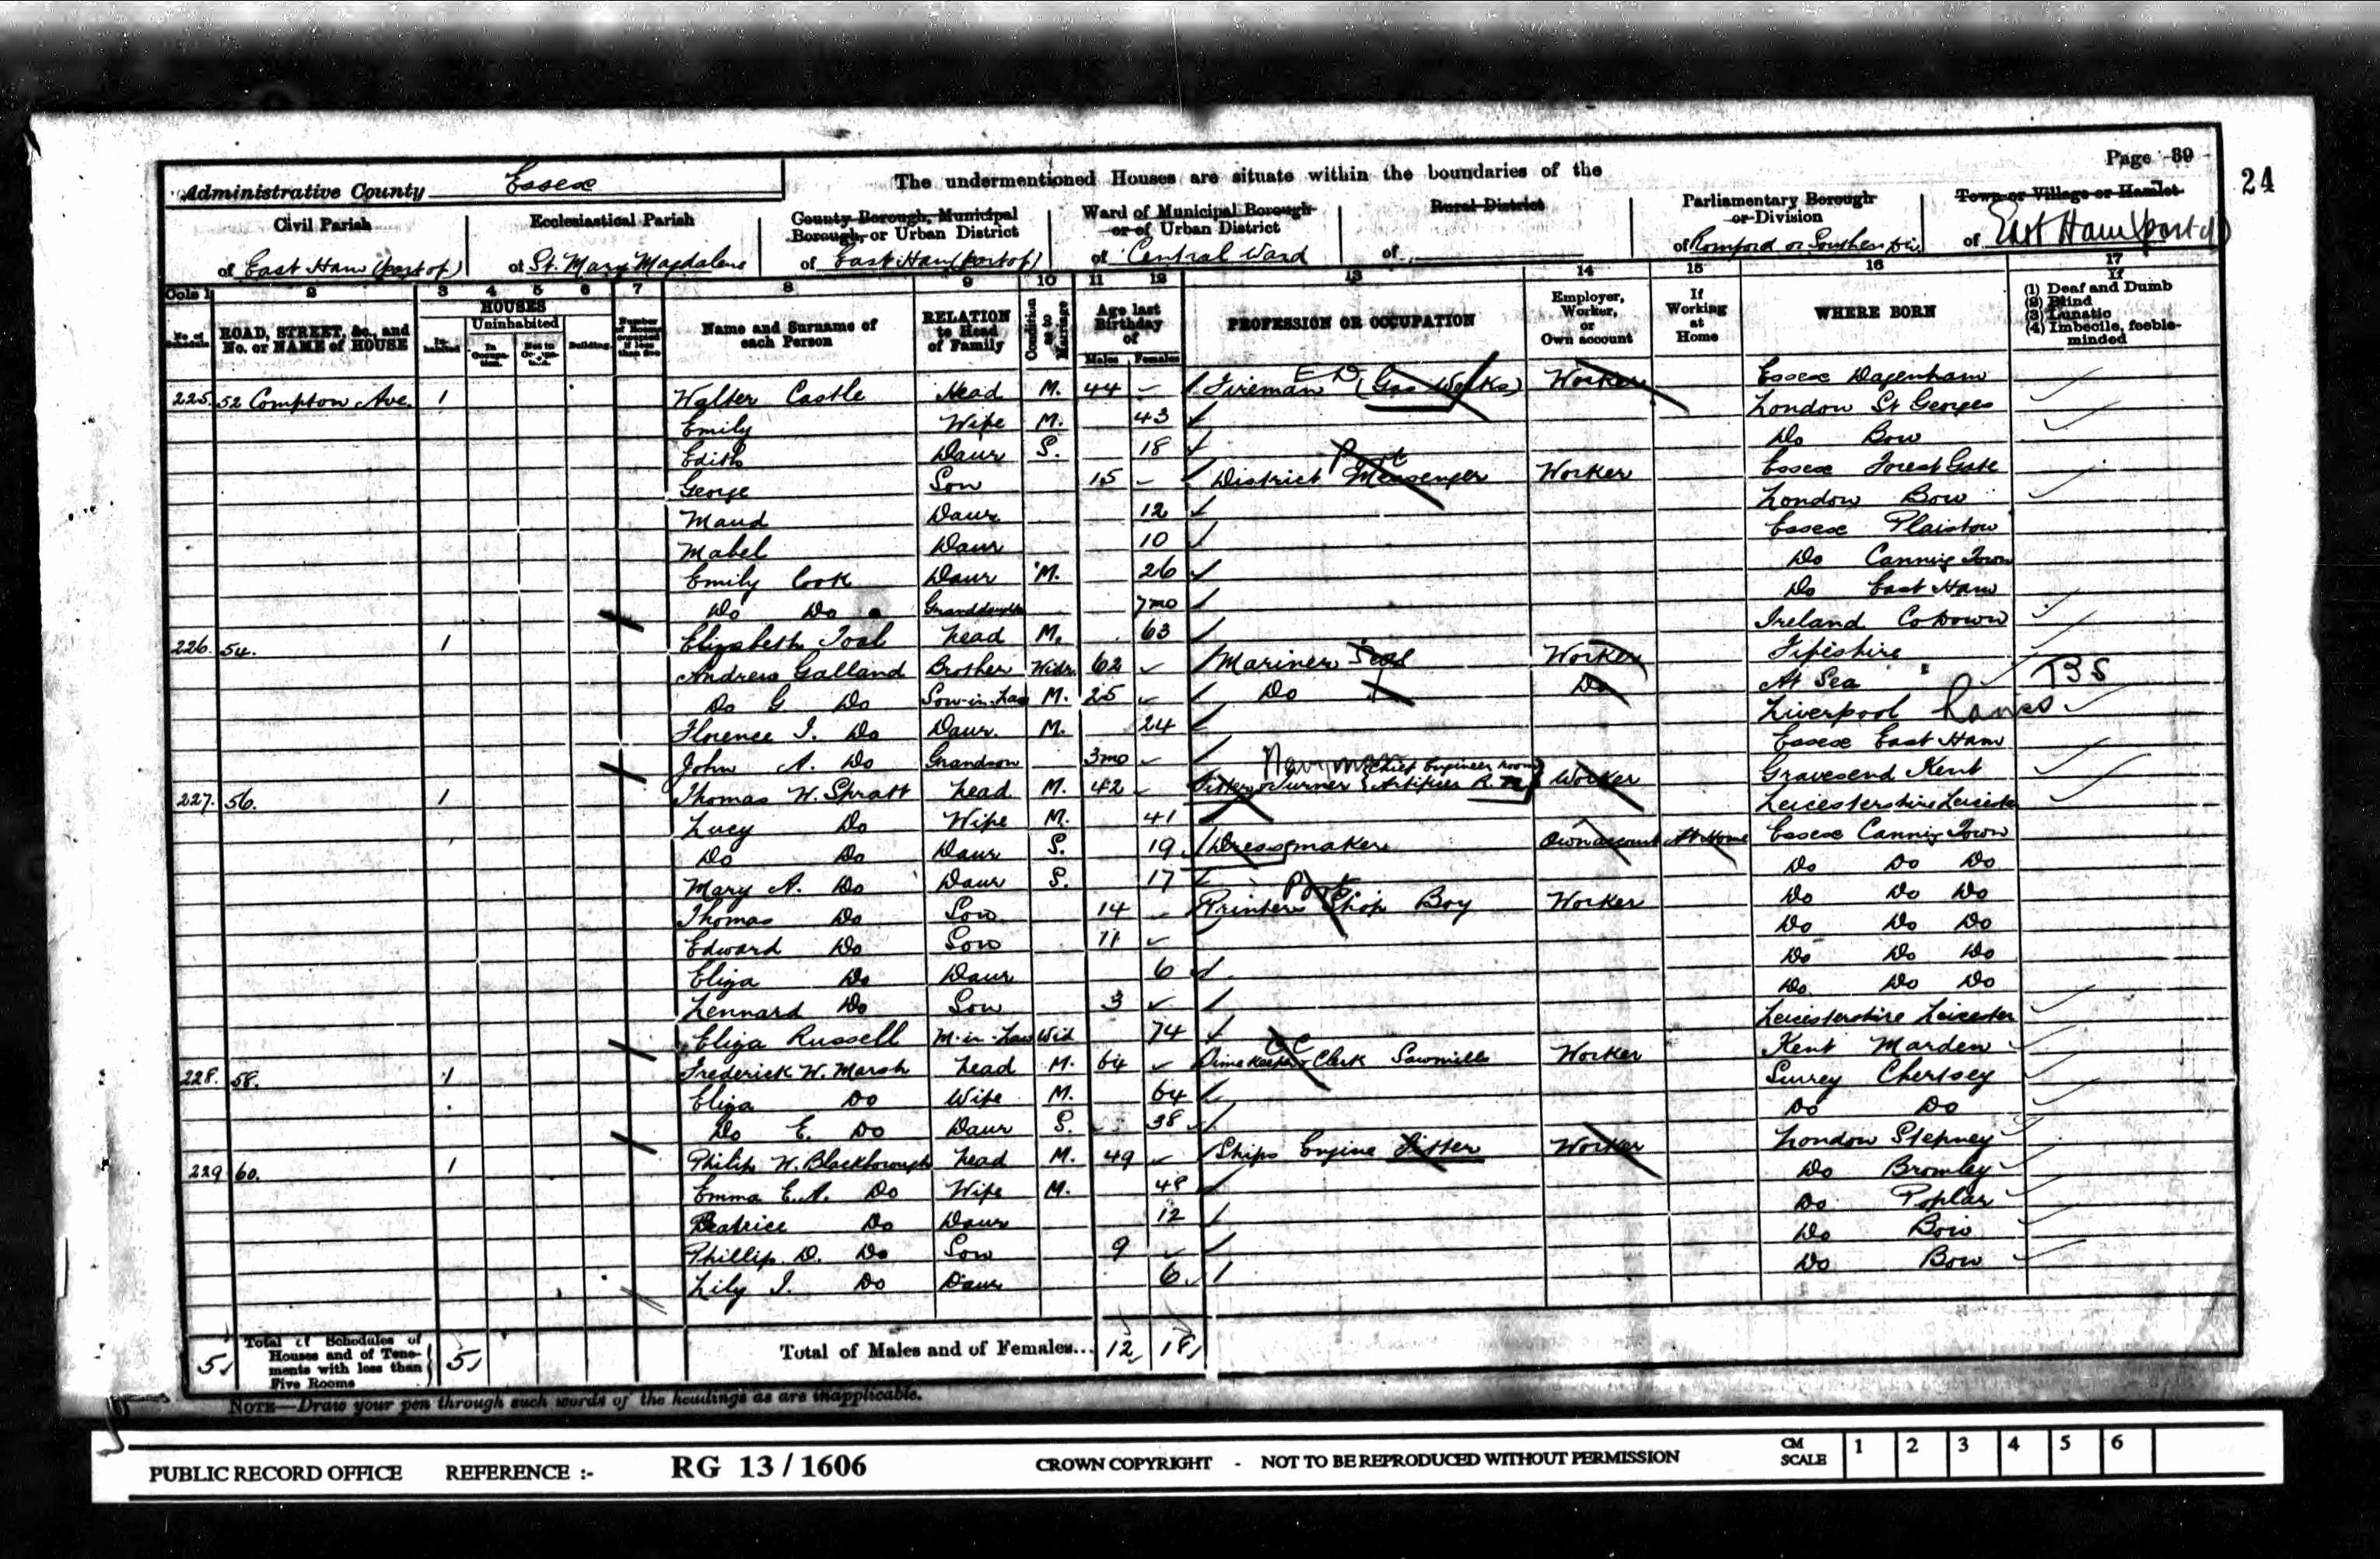 Page 39
24
Administrative County Essex
The undermentioned Houses are situate within the boundaries of the
Civil Parish
of East Ham (part of)
Ecclesiastical Parish
of St. Mary Magdalene
County Borough, Municipal Borough, or Urban District
of East Ham (part of)
Ward of Municipal Borough or of Urban District
of Central Ward
Rural District
of
Parliamentary Borough or Division
of Romford or Southern Div.
Town or Village or Hamlet
of East Ham (part of)
Cols 1 2 3 4 5 6 7 8 9 10 11 12 13 14 15 16 17
No. of Schedule
ROAD, STREET, &c., and No. or NAME of HOUSE
HOUSES
Inhabited
Uninhabited
In Occupation.
Not in Occupation.
Building.
Number of Rooms occupied if less than five
Name and Surname of each Person
RELATION to Head of Family
Condition as to Marriage
Age last Birthday of
Males Females
PROFESSION OR OCCUPATION
Employer, Worker, or Own account
If Working at Home
WHERE BORN
If
(1) Deaf and Dumb
(2) Blind
(3) Lunatic
(4) Imbecile, feeble-minded
225. 52 Compton Ave. 1 Walter Castle Head M. 44 Fireman (Gas Works) Worker Essex Dagenham
Emily Wife M. 43 London St Georges
Edith Daur S. 18 Do Bow
George Son 15 District Messenger Worker Essex Forest Gate
Maud Daur 12 London Bow
Mabel Daur 10 Essex Plaistow
Emily Cook Daur M. 26 Do Canning Town
Do Do Granddaughter 7mo Do East Ham
226. 54. 1 Elizabeth Toal head M. 63 Ireland Co Down
Andrew Galland Brother Widr. 62 Mariner Seas Worker Fifeshire
Do G Do Son-in-Law M. 25 Do Do At Sea TBS
Florence I. Do Daur. M. 24 Liverpool Lancs
John A. Do Grandson 3mo Essex East Ham
227. 56. 1 Thomas W. Spratt head M. 42 Fitter & Turner (Chief Engineer Room Artificer R.N.) Worker Gravesend Kent
Lucy Do Wife M. 41 Leicestershire Leicester
Do Do Daur S. 19 Dressmaker Own account At Home Essex Canning Town
Mary A. Do Daur S. 17 Do Do Do
Thomas Do Son 14 Printers Shop Boy Worker Do Do Do
Edward Do Son 11 Do Do Do
Eliza Do Daur 6 Do Do Do
Lennard Do Son 3 Do Do Do
Eliza Russell M-in-Law Wid 74 Leicestershire Leicester
228. 58. 1 Frederick W. Marsh head M. 64 Timekeeper & Clerk Sawmills Worker Kent Marden
Eliza Do Wife M. 64 Surrey Chertsey
Do E. Do Daur S. 38 Do Do
229 60. 1 Philip W. Blackborough head M. 49 Ships Engine Fitter Worker London Stepney
Emma E. A. Do Wife M. 48 Do Bromley
Beatrice Do Daur 12 Do Poplar
Phillip D. Do Son 9 Do Bow
Lily I. Do Daur 6 Do Bow
5 Total of Schedules of Houses and of Tenements with less than Five Rooms 5 Total of Males and of Females... 12 18
NOTE—Draw your pen through such words of the headings as are inapplicable.
PUBLIC RECORD OFFICE REFERENCE :- RG 13 / 1606 CROWN COPYRIGHT - NOT TO BE REPRODUCED WITHOUT PERMISSION CM SCALE 1 2 3 4 5 6